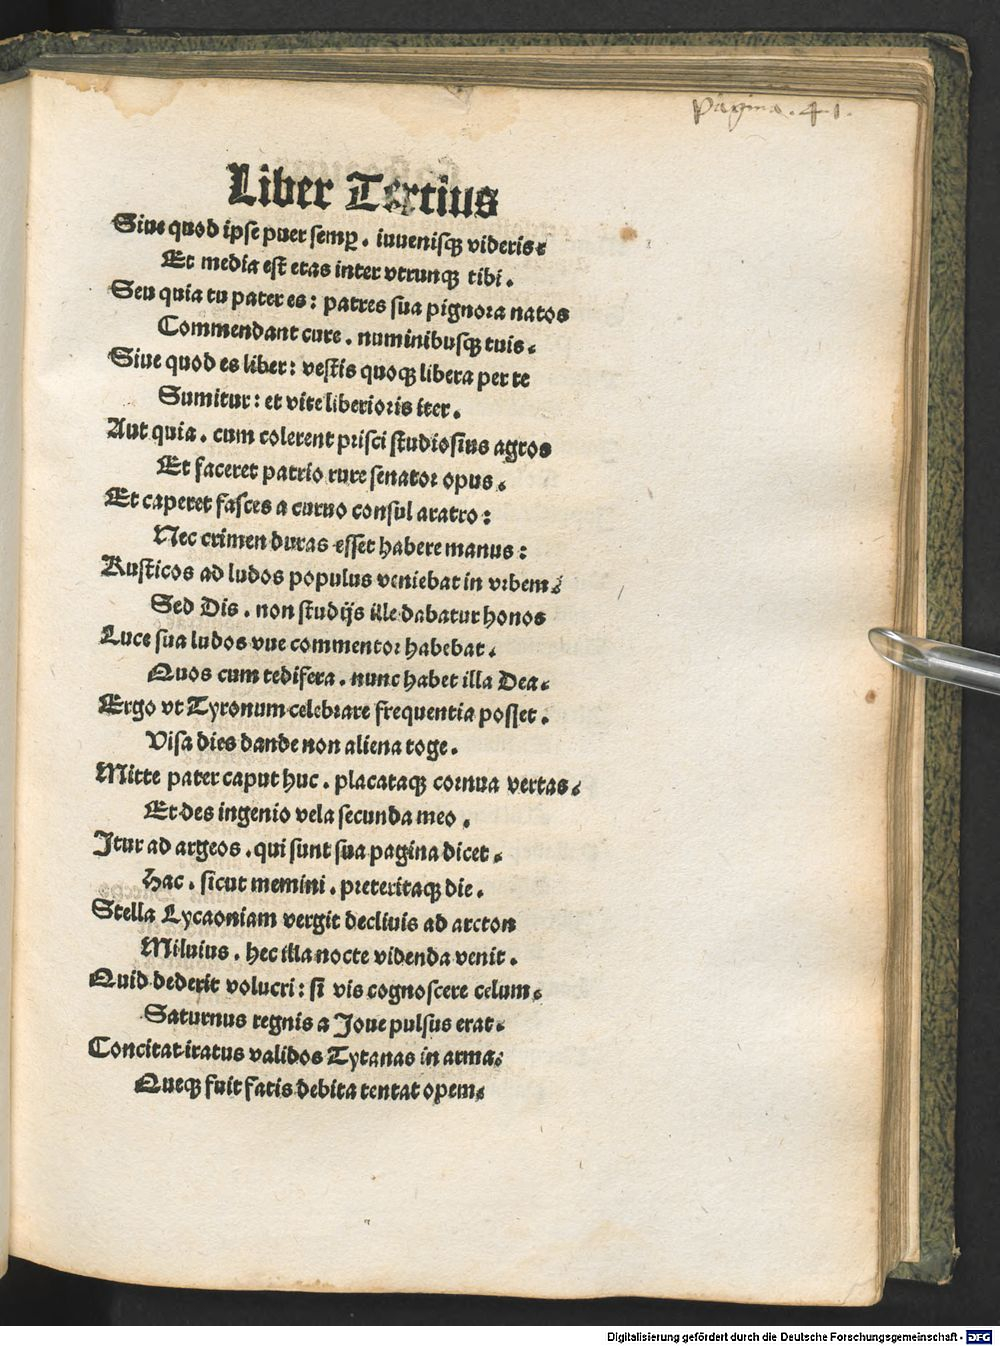 Pagina . 41.
Liber Tertius
Siue quod ipse puer semꝑ . iuuenisqꝫ videris:
Et media est etas inter vtrunqꝫ tibi .
Seu quia tu pater es : patres sua pignora natos
Commendant cure . numinibusqꝫ tuis:
Siue quod es liber : vestis quoqꝫ libera per te
Sumitur : et vite liberioris iter .
Aut quia . cum colerent prisci studiosius agros
Et faceret patrio rure senator opus .
Et caperet fasces a curuo consul aratro :
Nec crimen duras esset habere manus :
Rusticos ad ludos populus veniebat in vrbem:
Sed Dis . non studijs ille dabatur honos
Luce sua ludos vue commentor habebat .
Quos cum tedifera . nunc habet illa Dea:
Ergo vt Tyronum celebrare frequentia posset .
Visa dies dande non aliena toge .
Mitte pater caput huc . placataqꝫ cornua vertas:
Et des ingenio vela secunda meo .
Itur ad argeos . qui sunt sua pagina dicet:
Hac . sicut memini . preteritaqꝫ die .
Stella Lycaoniam vergit decliuis ad arcton
Miluius . hec illa nocte videnda venit .
Quid dederit volucri : si vis cognoscere celum:
Saturnus regnis a Joue pulsus erat:
Concitat iratus validos Tytanas in arma:
Queqꝫ fuit fatis debita tentat opem:
Digitalisierung gefördert durch die Deutsche Forschungsgemeinschaft - DFG